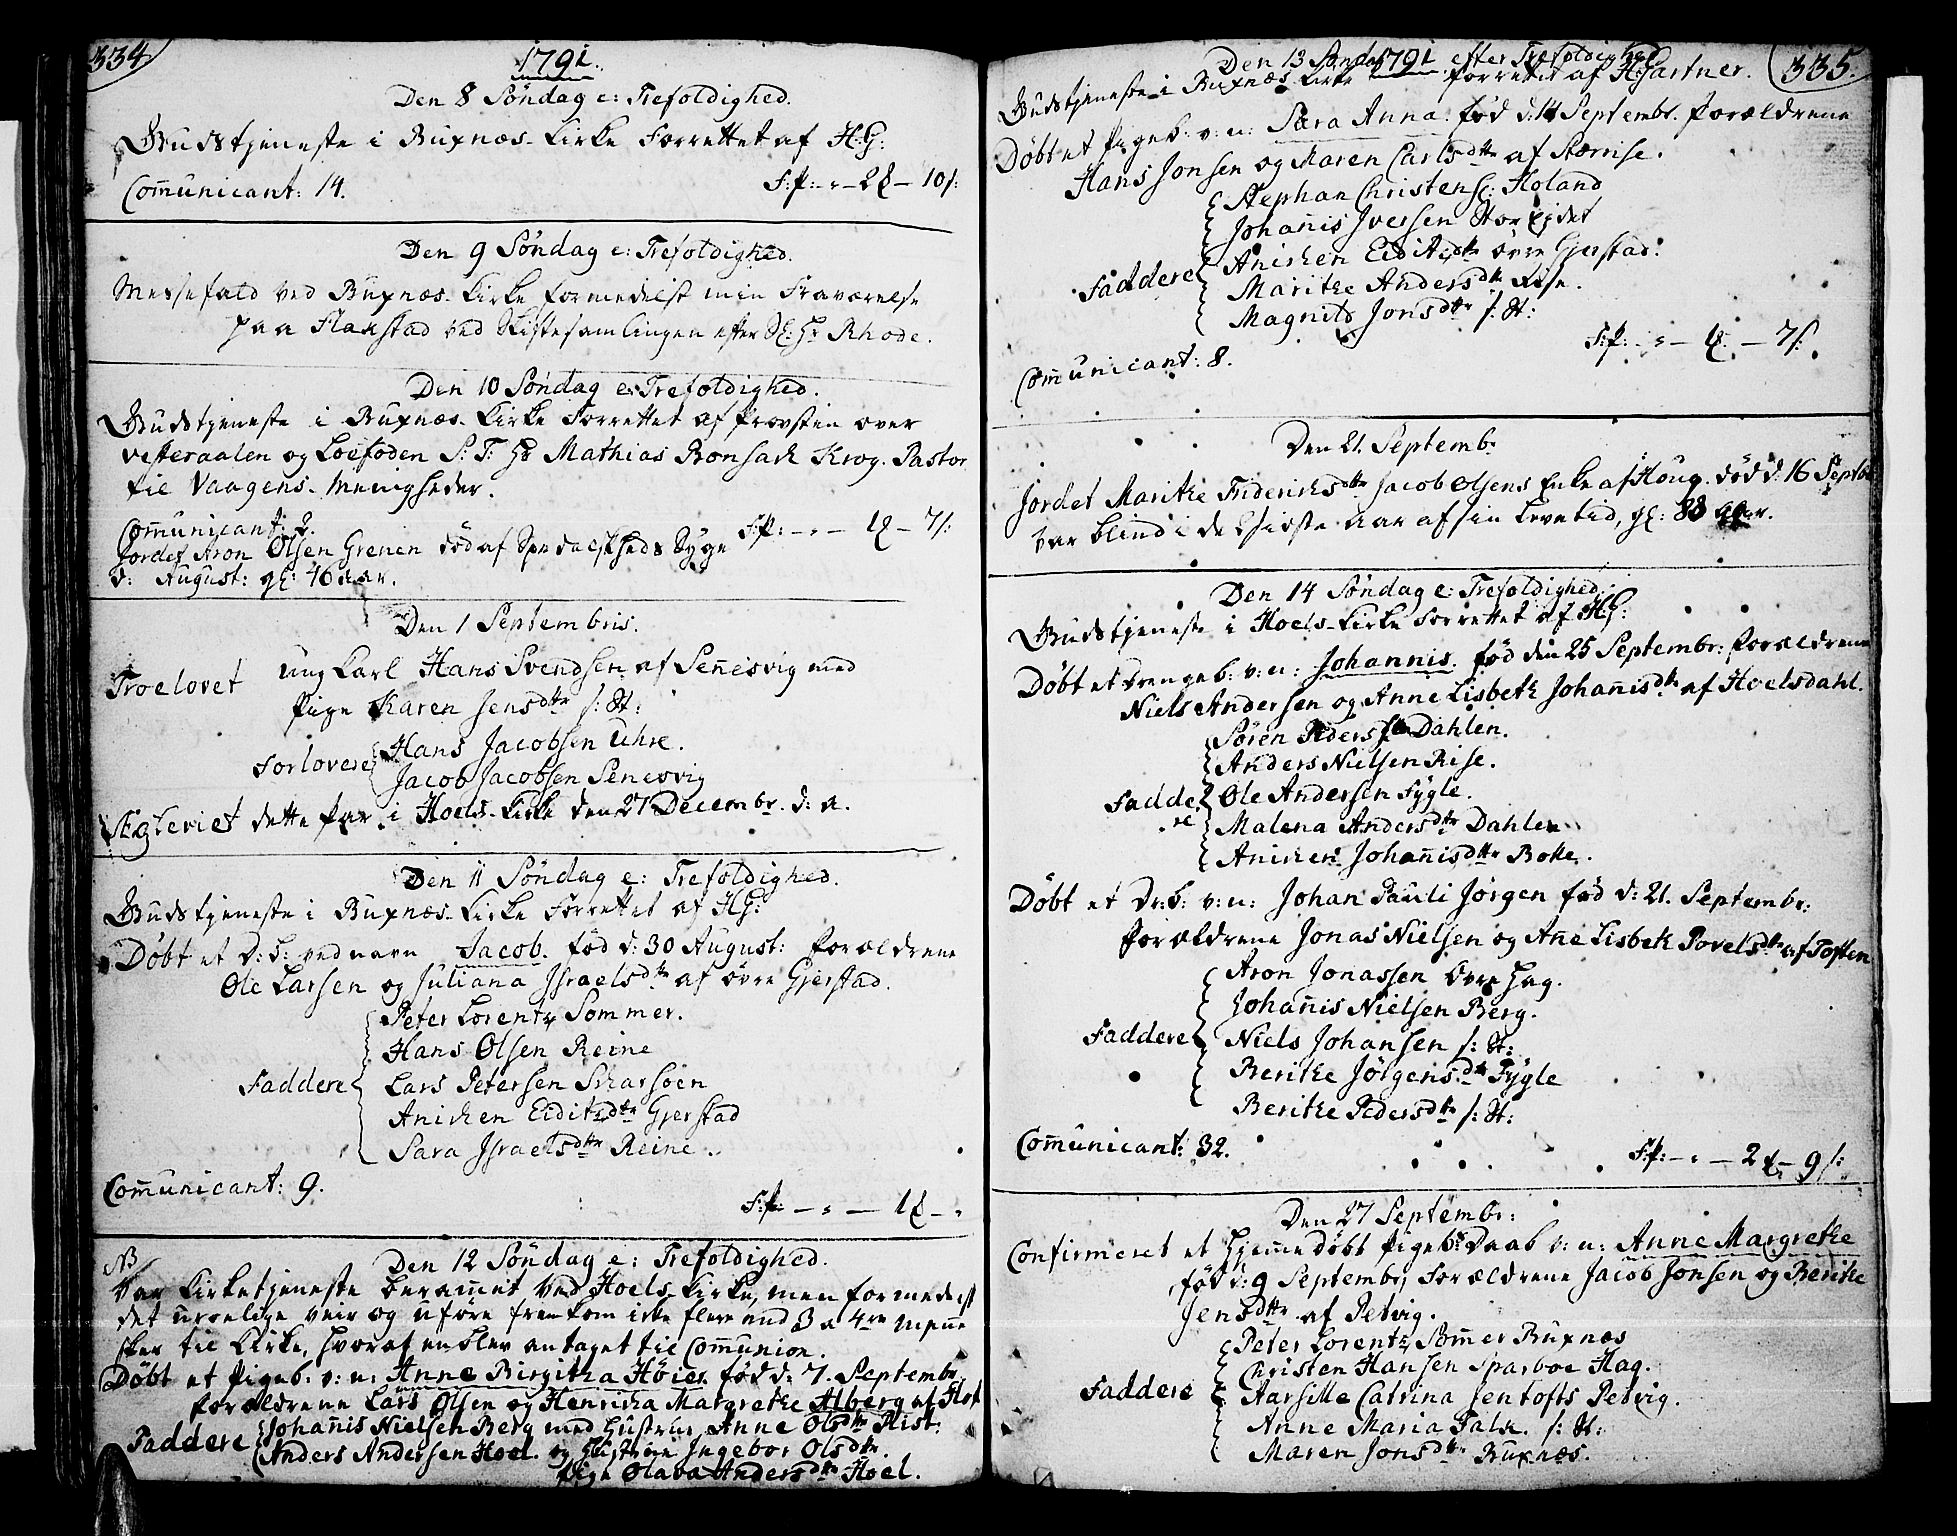 334.
1791.
Den 8 Søndag e: Trefoldighed.
Gudstjeneste i Buxnæs-Kirke Forrettet af H:G:
Com̄unicant: 14.
F:P: – " – 2 – 10 s:
Den 9 Søndag e: Trefoldighed.
Messefald ved Buxnæs-Kirke formedelst min Fraværelse
paa Flakstad ved Skiftesamlingen efter Sl: Hr Rhode.
Den 10 Søndag e: Trefoldighed.
Gudstjeneste i Buxnæs-Kirke Forrettet af Provsten over
Vesteraalen og Lofoden S: T: Hr Mathias Bonsach Krog. Pastor
til Vaagens-Menigheder.
Com̄unicant: 2.
F:P: – " – 1 – 7 s:
Jordet Aron Olsen Grenen død af Spedalskheds Syge
d: August: gl: 46 aar.
Den 1 Septembris.
Troelovet Ung Karl Hans Svendsen af Sen̄esvig med
Pige Karen Jensdttr s: St:
Forlovere Hans Jacobsen Uhre.
Jacob Jacobsen Senesvig
Ægteviet dette Par i Hoels-Kirke den 27 Decembr. d: a.
Den 11 Søndag e: Trefoldighed.
Gudstjeneste i Buxnæs-Kirke Forrettet af HG:
Døbt et D:b: ved navn Jacob. fød d: 30 August: Forældrene
Ole Larsen og Juliana Israelsdtr af øvre Gjerstad.
Peter Lorentz Sommer.
Hans Olsen Reine
Faddere Lars Petersen Skarsøen
Anichen Eiditzdtr Gjerstad
Sara Israelsdttr Reine.
Com̄unicant: 9.
F:P: – " – 1 – "
NB
Den 12 Søndag e: Trefoldighed.
Var Kirketjeneste beram̄et ved Hoels-Kirke, men formedelst
det uroelige veir og uføre fremkom ikke flere end 3 a 4re Men̄e
sker til Kirke, hvoraf en blev antaget til Com̄union.
Døbt et Pigeb: v: n: Anne Birgitha Høier fød d: 7. Septembr.
Forældrene Lars Olsen og Henricha Margrethe Alberg af Hol
Faddere Johan̄is Nielsen Berg med Hustrue Anne Olsdtr Rist:
Anders Andersen Hoel. og Hustrue Ingebor Olsdtr.
Pige Olava Andersdtr Hoel.
335.
1791
Den 13 Søndag efter Trefoldighed
Gudstjeneste i Buxnæs-Kirke forrettet af HGartner.
Døbt et Pigeb: v: n: Sara Anna: fød d: 14 Septembr. Forældrene
Hans Jonsen og Maren Carlsdttr af Stærrise.
Stephan Christens: Holand
Johan̄is Iversen Storeidet
Faddere Anichen Eiditzdtr øvre Gjerstad:
Marithe Andersdtr Rise.
Magnild Jonsdttr s: St:
F:P: – " – 1 – 7 s:
Com̄unicant: 8.
Den 21. Septembr
Jordet Marithe Friderichsdttr Jacob Olsens Enke af Houg. død d: 16 Septbr
var blind i de sidste aar af sin levetid, gl: 88 aar.
Den 14 Søndag e: Trefoldighed:
Gudstjeneste i Hoels-Kirke Forrettet af HG:
Døbt et Drengeb: v: n: Johannis. fød den 25 Septembr: Forældrene
Niels Andersen og Anne Lisbeth Johan̄isdtr af Hoelsdahl.
Søren Peders: Dahlen.
Anders Nielsen Rise.
Faddere Ole Andersen Fygle.
Malena Andersdtr Dahlen
Anichen Johan̄isdttr Bolle.
Døbt et Dr:b: v: n: Johan Pauli Jørgen fød d: 21. Septembr:
Forældrene Jonas Nielsen og An̄e Lisbeth Povelsdtr af Toften
Aron Jonassen øvre Hag.
Johan̄is Nielsen Berg.
Faddere Niels Johansen s: St:
Berithe Jørgensdtr Fygle
Berithe Pedersdtr s: St:
Com̄unicant: 32.
F:P: – " – 2 – 9 s:
Den 27 Septembr:
Confirmeret et hjemmedøbt Pigebs Daab v: n: Anne Margrethe
fød d: 9 Septembr, Forældrene Jacob Jonsen og Berithe
Jensdttr af Petvig.
Peter Lorentz Som̄er Buxnæs
Christen Hansen Sparboe Hag.
Faddere Aarsille Catrina Jentofts Petvig.
Anne Maria Falk. s: St:
Maren Jonsdtr Buxnæs.